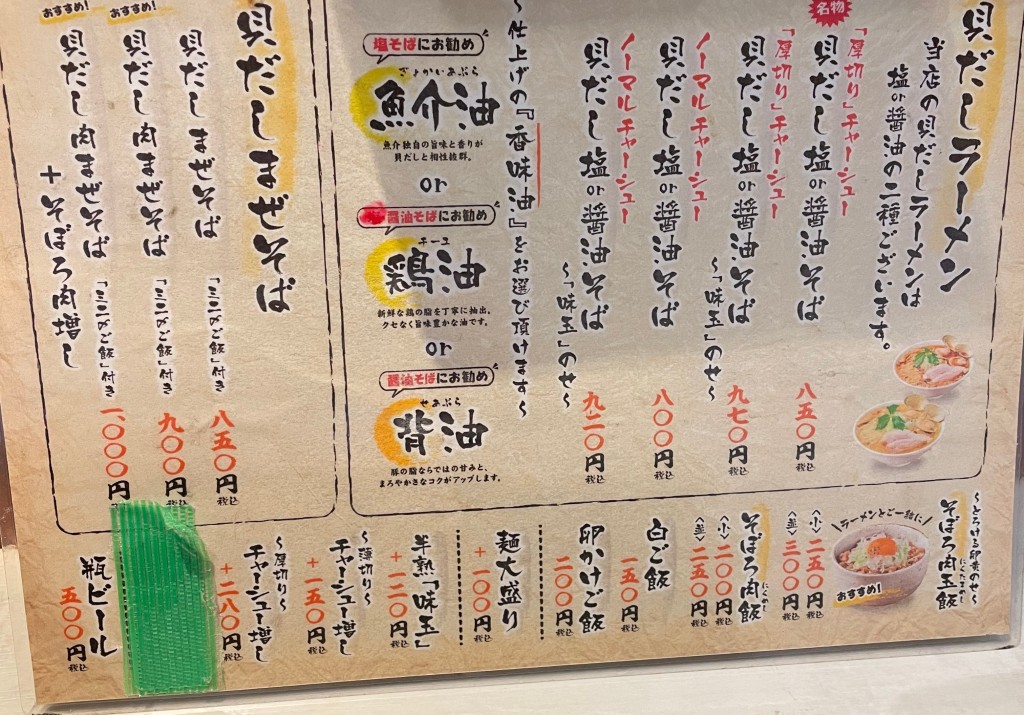 貝だしラーメン
当店の貝だしラーメンは
塩or醤油の二種ございます。
名物
「厚切り」チャーシュー
貝だし塩or醤油そば
八五〇円
税込
「厚切り」チャーシュー
貝だし塩or醤油そば
〜「味玉」のせ〜
九七〇円
税込
ノーマルチャーシュー
貝だし塩or醤油そば
八〇〇円
税込
ノーマルチャーシュー
貝だし塩or醤油そば
〜「味玉」のせ〜
九二〇円
税込
〜仕上げの『香味油』をお選び頂けます〜
塩そばにお勧め
ぎょかいあぶら
魚介油
魚介独自の旨味と香りが
貝だしと相性抜群。
or
醤油そばにお勧め
チーユ
鶏油
新鮮な鶏の脂を丁寧に抽出。
クセなく旨味豊かな油です。
or
醤油そばにお勧め
せあぶら
背油
豚の脂ならではの甘みと、
まろやかさなコクがアップします。
貝だしまぜそば
貝だしまぜそば
「ミニ〆ご飯」付き
八五〇円
税込
おすすめ!
貝だし肉まぜそば
「ミニ〆ご飯」付き
九〇〇円
税込
おすすめ!
貝だし肉まぜそば
+そぼろ肉増し
「ミニ〆ご飯」付き
一、〇〇〇円
〜とろける卵黄のせ〜
そぼろ肉玉飯
にくたまめし
ラーメンとご一緒に
おすすめ!
〈小〉二五〇円
税込
〈並〉三〇〇円
税込
そぼろ肉飯
にくめし
〈小〉二〇〇円
税込
〈並〉二五〇円
税込
白ご飯
一五〇円
税込
卵かけご飯
二〇〇円
税込
麺大盛り
+一〇〇円
税込
半熟「味玉」
+一二〇円
税込
〜薄切り〜
チャーシュー増し
+一五〇円
税込
〜厚切り〜
チャーシュー増し
+二八〇円
税込
瓶ビール
五〇〇円
税込